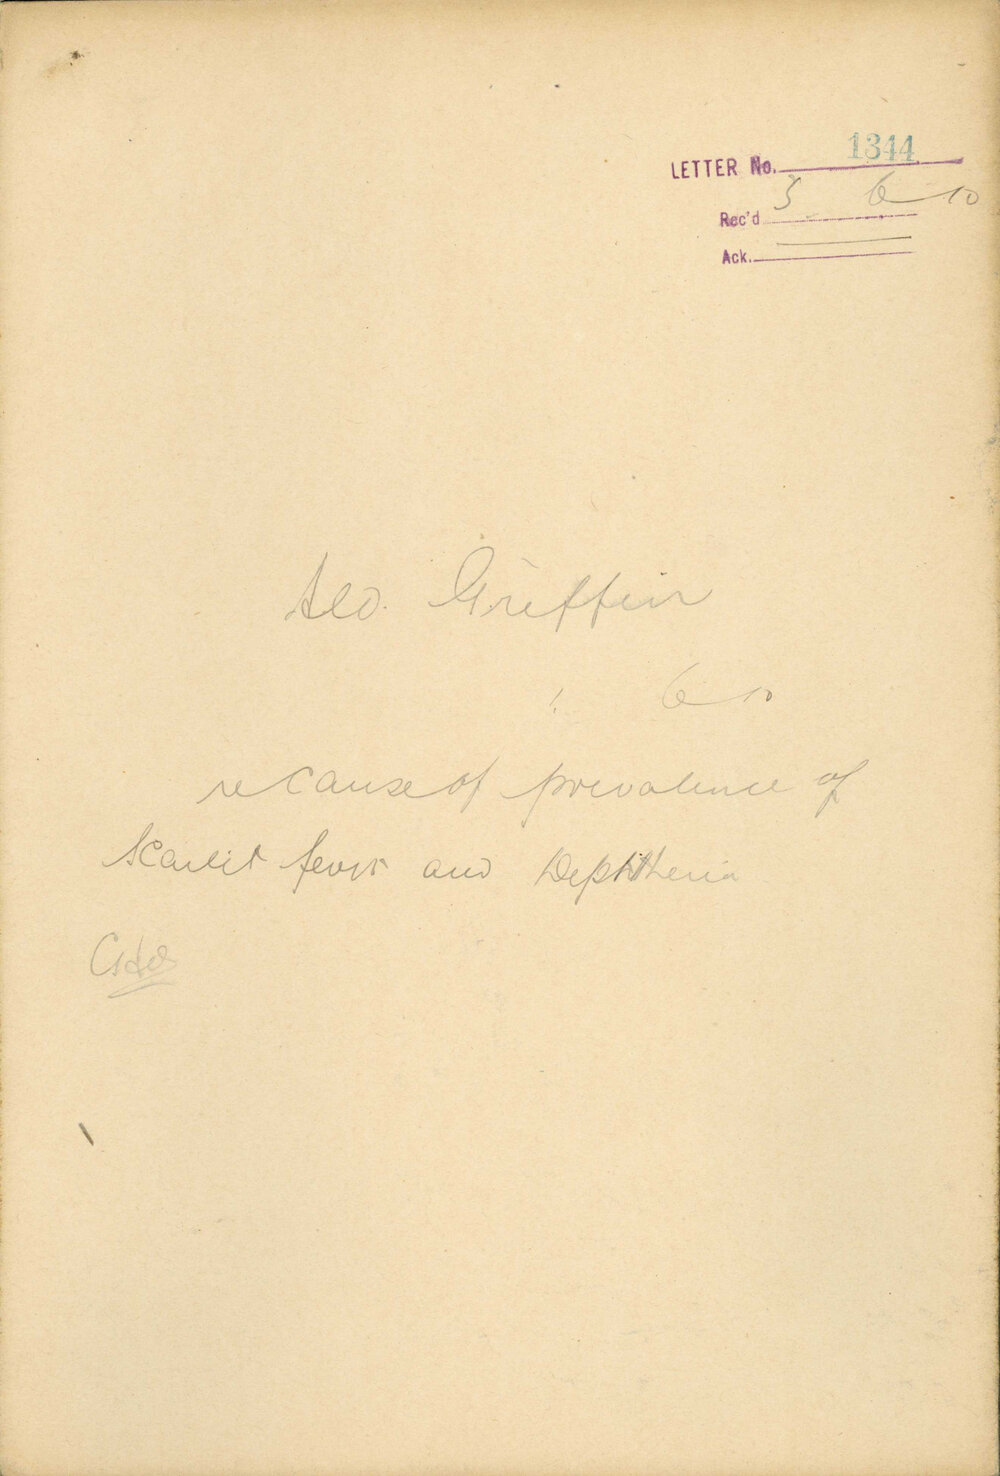 LETTER No. 1344
Rec'd 3 6 10
Ack.
Geo. Griffin
6 10
re cause of prevalence of
Scarlet fever and Diphtheria